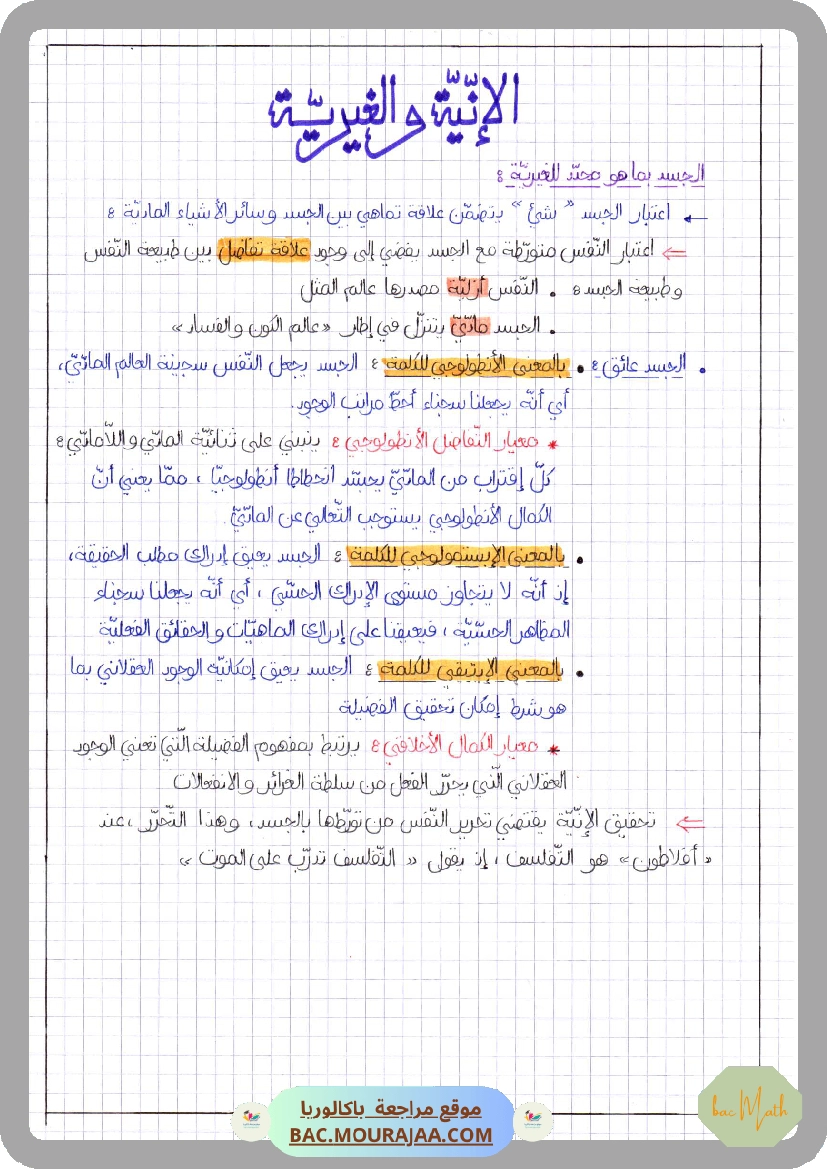 الإنّيّة والغيريّة
الجسد بما هو محدّد للغيريّة :
← اعتبار الجسد "شئ" يتضمّن علاقة تماهي بين الجسد وسائر الأشياء الماديّة :
⇐ اعتبار النّفس متورّطة مع الجسد يفضي إلى وجود علاقة تفاضل بين طبيعة النّفس
وطبيعة الجسد : • النّفس أزليّة مصدرها عالم المثل
• الجسد مادّيّ يتنزّل في إطار «عالم الكون والفساد»
• الجسد عائق : • بالمعنى الأنطولوجي للكلمة : الجسد يجعل النّفس سجينة العالم المادّيّ،
أي أنّه يجعلنا سجناء أحطّ مراتب الوجود.
* معيار التّفاضل الأنطولوجي : ينبني على ثنائيّة المادّي واللّامادّي :
كلّ إقتراب من المادّيّ يجسّد انحطاطا أنطولوجيّا ، ممّا يعني أنّ
الكمال الأنطولوجي يستوجب التّعالي عن المادّيّ.
• بالمعنى الإبستمولوجي للكلمة : الجسد يعيق إدراك مطلب الحقيقة،
إذ أنّه لا يتجاوز مستوى الإدراك الحسّي ، أي أنّه يجعلنا سجناء
المظاهر الحسّيّة ، فيعيقنا على إدراك الماهيّات والحقائق الفعليّة
• بالمعنى الإيتيقي للكلمة : الجسد يعيق إمكانيّة الوجود العقلاني بما
هو شرط إمكان تحقيق الفضيلة
* معيار الكمال الأخلاقي : يرتبط بمفهوم الفضيلة الّتي تعني الوجود
العقلاني الّذي يحرّر الفعل من سلطة الغرائز والانفعالات
⇐ تحقيق الإنّيّة يقتضي تحرير النّفس من تورّطها بالجسد، وهذا التّحرّر ،عند
«أفلاطون» هو التّفلسف ، إذ يقول « التّفلسف تدرّب على الموت »
موقع مراجعة باكالوريا
BAC.MOURAJAA.COM
bac Math